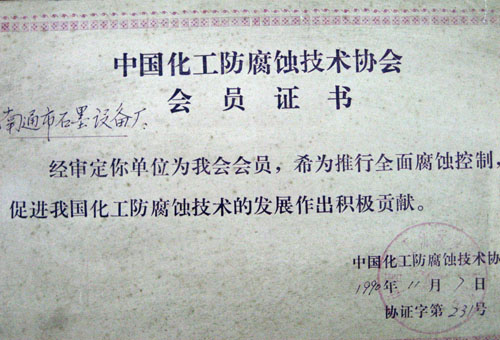 中国化工防腐蚀技术协会
会员证书
南通市石墨设备厂:
经审定你单位为我会会员，希为推行全面腐蚀控制，
促进我国化工防腐蚀技术的发展作出积极贡献。
中国化工防腐蚀技术协
1990年11月7日
协证字第231号